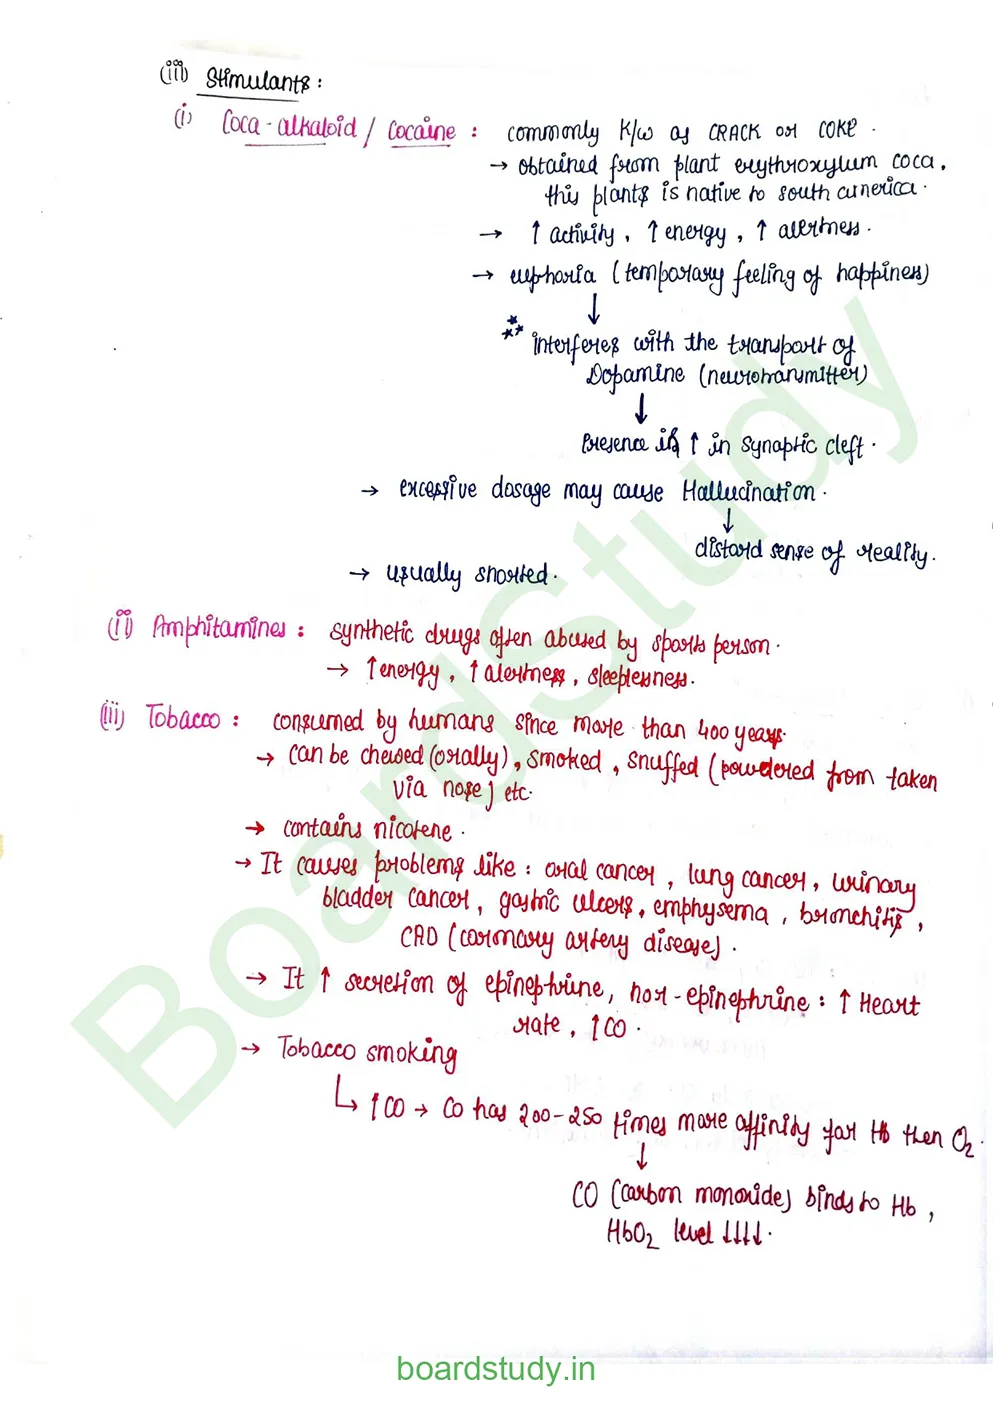 (iii) Stimulants :
(i) Coca-alkaloid / Cocaine : commonly K/w as CRACK or COKE.
→ obtained from plant erythroxylum coca,
this plants is native to south america.
→ ↑ activity, ↑ energy, ↑ alertness.
→ euphoria (temporary feeling of happiness)
↓
*** interferes with the transport of
Dopamine (neurotransmitter)
↓
Presence is ↑ in synaptic cleft.
→ excessive dosage may cause Hallucination.
↓
distord sense of reality.
→ usually snorted.
(ii) Amphitamines : synthetic drugs often abused by sports person.
→ ↑ energy, ↑ alertness, sleeplessness.
(iii) Tobacco : consumed by humans since more than 400 years.
→ can be chewed (orally), smoked, snuffed (powdered from taken
via nose) etc.
→ contains nicotene.
→ It causes problems like : oral cancer, lung cancer, urinary
bladder cancer, gastric ulcers, emphysema, bronchitis,
CAD (coronary artery disease).
→ It ↑ secretion of epinephrine, nor-epinephrine : ↑ Heart
rate, ↑ CO.
→ Tobacco smoking
↳ ↑ CO → CO has 200-250 times more affinity for Hb then O₂.
↓
CO (carbon monoxide) binds to Hb,
HbO₂ level ↓↓↓↓.
BoardStudy
boardstudy.in